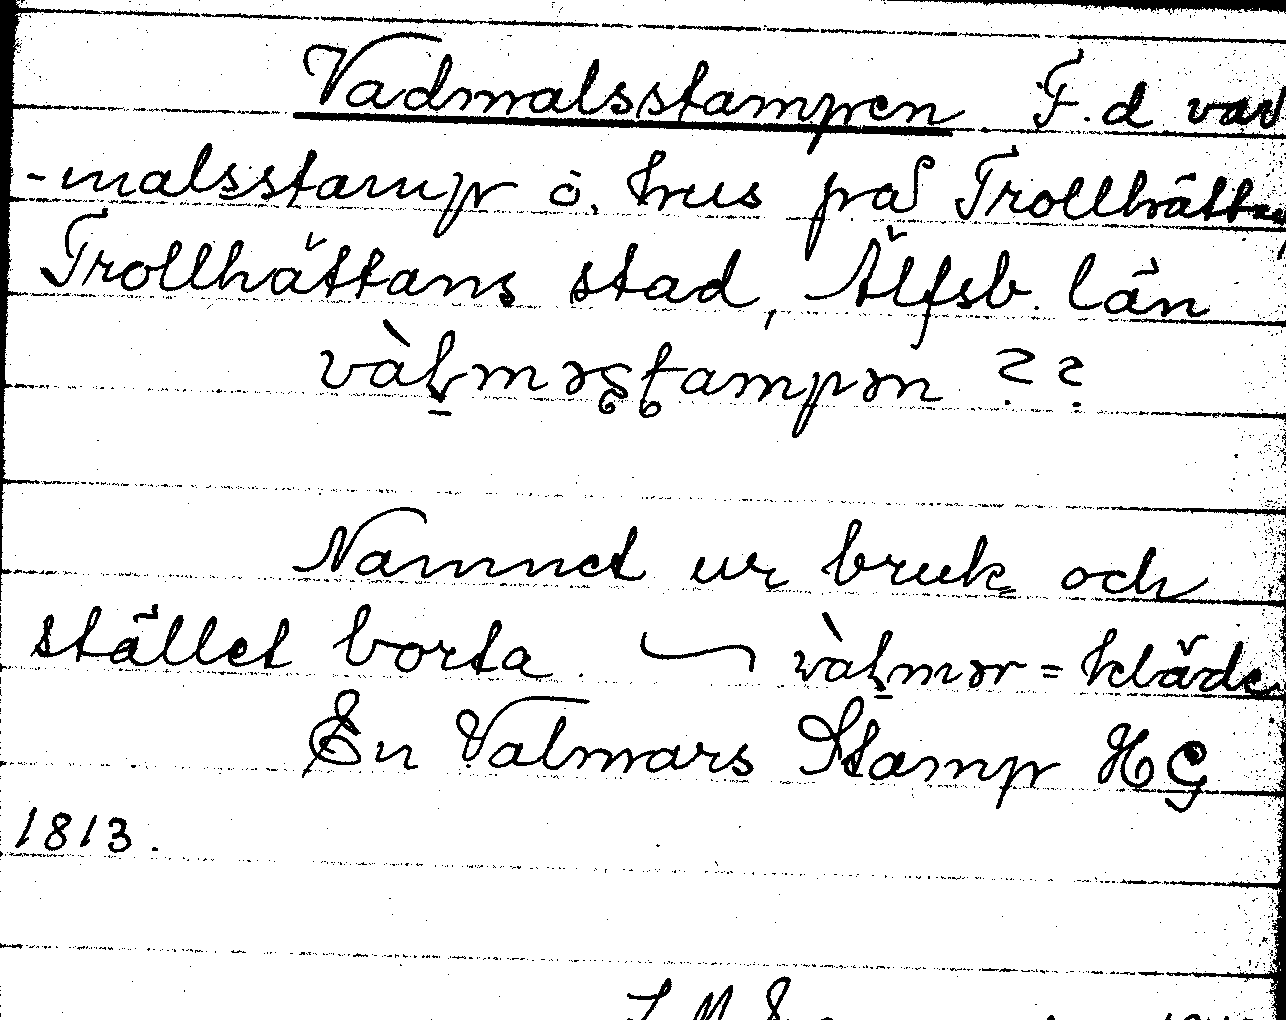 Vadmalsstampen F.d vad
-malsstamp o. hus på Trollhättan
Trollhättans stad, Älfsb. län
vàlmǝstampǝn ??
Namnet ur bruk och
stället borta. vàlmǝr = kläde
En Valmars Stamp HG
1813.